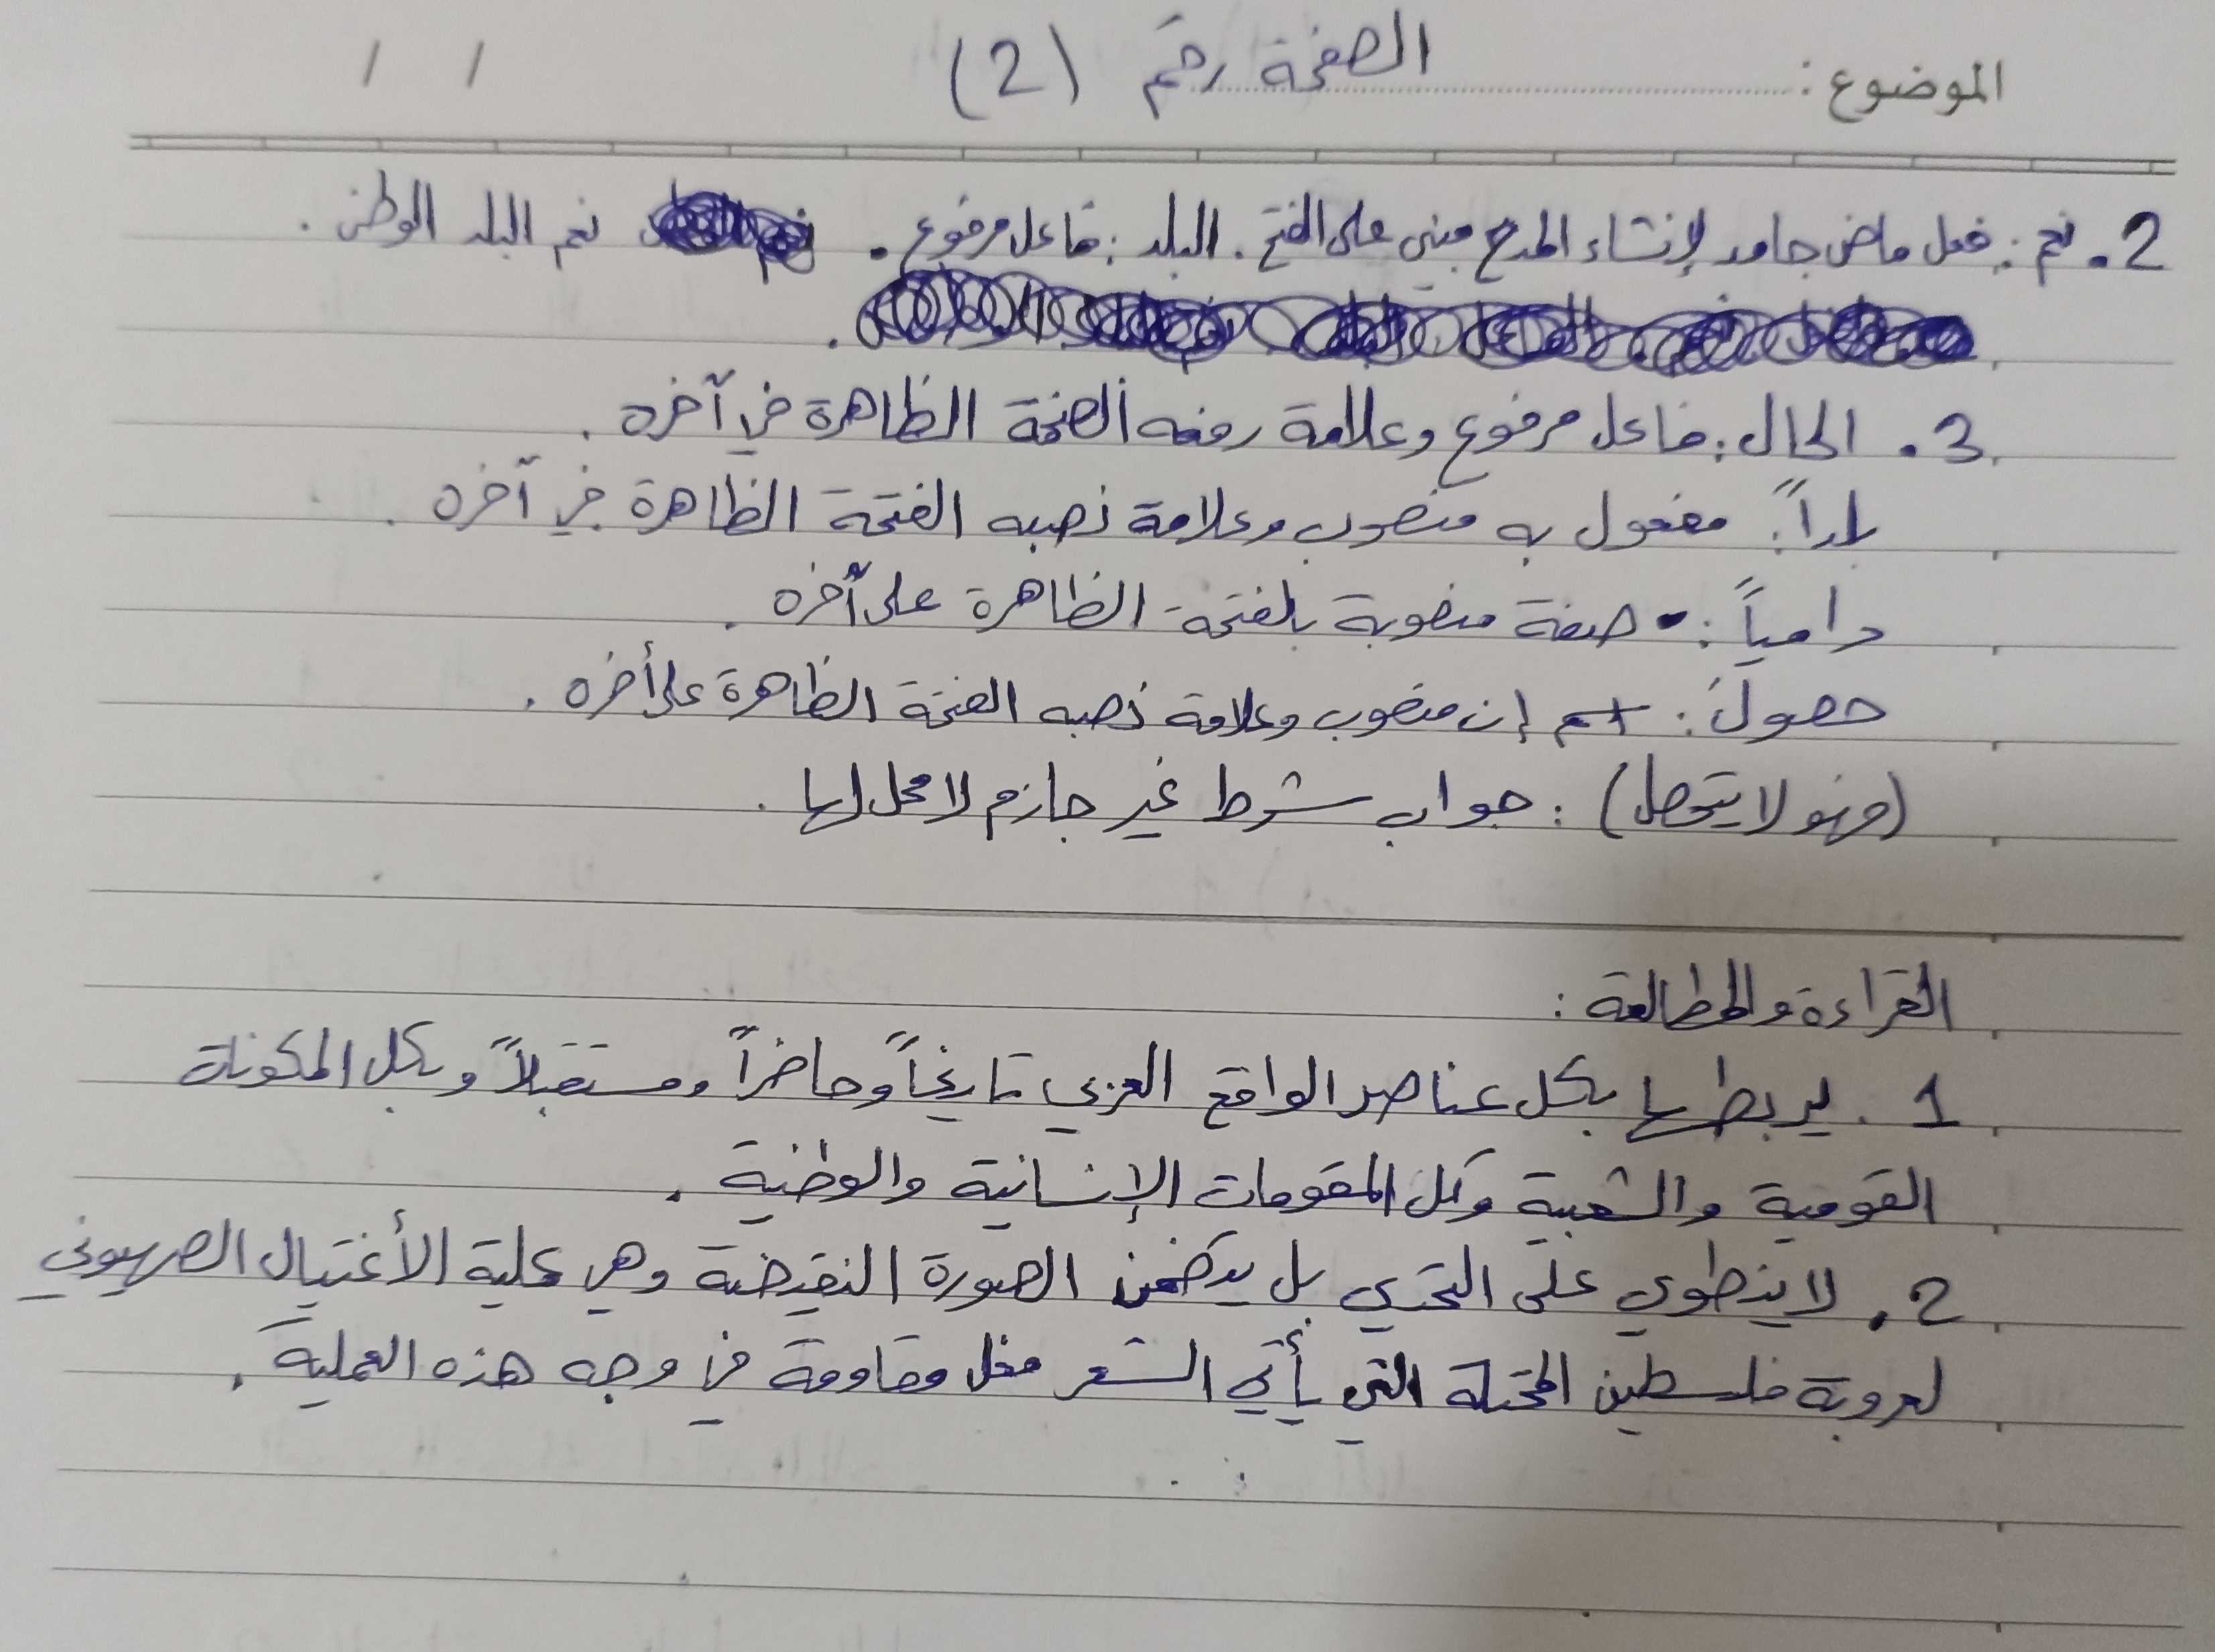 الموضوع: الصفحة رقم (2) / /
2. نعم: فعل ماض جامد لإنشاء المدح مبني على الفتح. البلد: فاعل مرفوع. نعم البلد الوطن.
3. الحال: فاعل مرفوع وعلامة رفعه الضمة الظاهرة في آخره.
باراً: مفعول به منصوب وعلامة نصبه الفتحة الظاهرة في آخره.
دامياً: صفة منصوبة بالفتحة الظاهرة على آخره.
حصولَ: اسم إن منصوب وعلامة نصبه الفتحة الظاهرة على أخره.
(فهو لا يتحصل): جواب شرط غير جازم لا محل لها.
القراءة والمطالعة:
1. يربطها بكل عناصر الواقع العربي تاريخاً وحاضراً ومستقبلاً وبكل المكونات
القومية والشعبية وكل المقومات الإنسانية والوطنية.
2. لا ينطوي على التحدي بل يتضمن الصورة النقيضة وهي عملية الأغتيال الصهيوني
لعروبة فلسطين المحتلة التي يأتي الشعر فعل مقاومة في وجه هذه العملية.